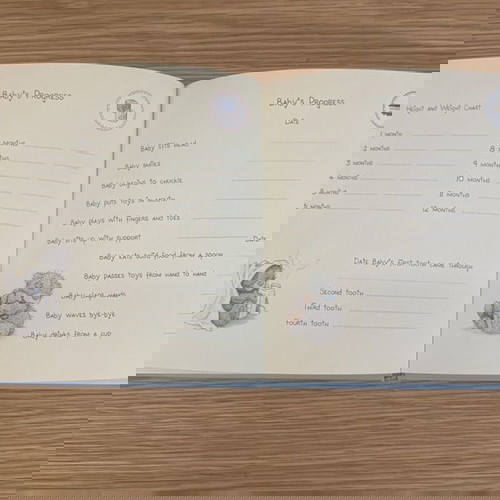 Baby's Progress
1 month
2 months
3 months
months
months
months
Baby lifts head
Baby smiles
Baby begins to chuckle
Baby puts toys in mouth
Baby plays with fingers and toes
Baby with support
Baby eats solid food from a spoon
Baby passes toys from hand to hand
Baby
Baby waves bye-bye
Baby drinks from a cup
Baby's Progress
Date
Height and Weight Chart
8
9 months
10 months
11 months
12 months
Date
Date Baby's first came through
Second tooth
Third tooth
Fourth tooth